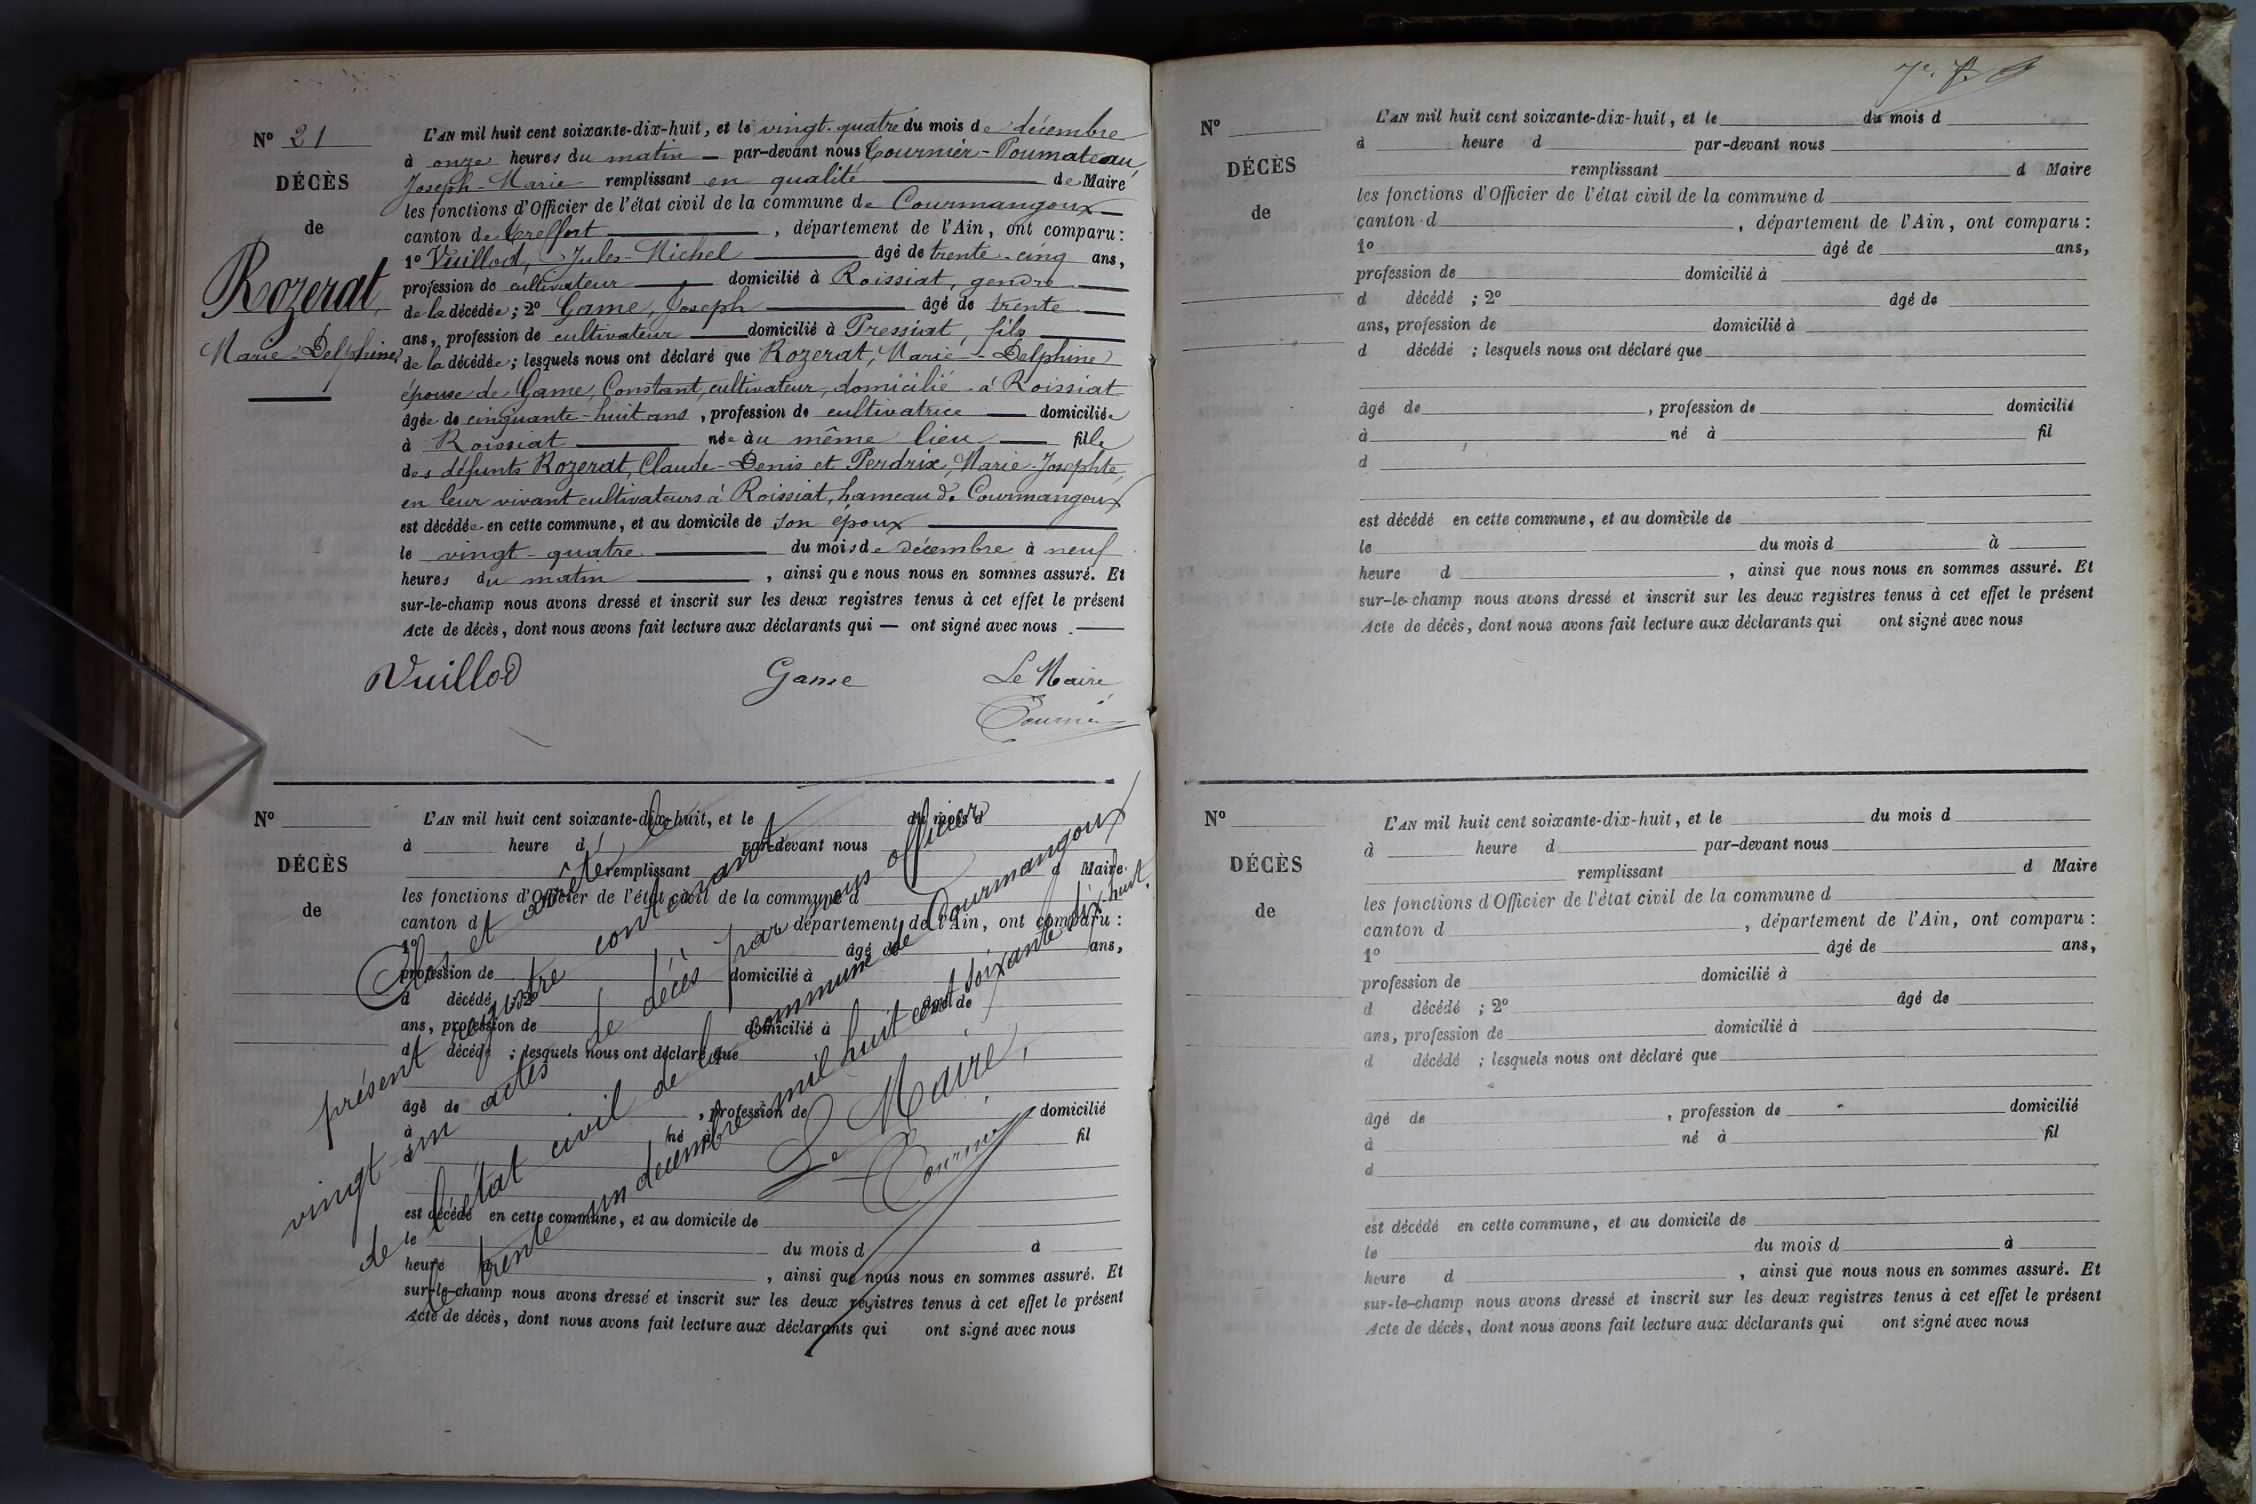 N° 21
DÉCÈS
de
Rozerat,
Marie-Delphine
L'AN mil huit cent soixante-dix-huit, et le vingt-quatre du mois de décembre
à onze heures du matin — par-devant nous Tournier-Poumateau,
Joseph-Marie remplissant en qualité de Maire
les fonctions d'Officier de l'état civil de la commune de Courmangoux
canton de Treffort, département de l'Ain, ont comparu :
1° Vuillod, Jules-Michel âgé de trente-cinq ans,
profession de cultivateur domicilié à Roissiat, gendre
de la décédée ; 2° Game, Joseph âgé de trente
ans, profession de cultivateur domicilié à Pressiat, fils
de la décédée ; lesquels nous ont déclaré que Rozerat, Marie-Delphine
épouse de Game, Constant, cultivateur, domicilié à Roissiat
âgée de cinquante-huit ans, profession de cultivatrice domiciliée
à Roissiat née au même lieu fille
des défunts Rozerat, Claude-Denis et Perdrix, Marie-Josephte,
en leur vivant cultivateurs à Roissiat, hameau de Courmangoux
est décédée en cette commune, et au domicile de son époux
le vingt-quatre du mois de décembre à neuf
heures du matin, ainsi que nous nous en sommes assuré. Et
sur-le-champ nous avons dressé et inscrit sur les deux registres tenus à cet effet le présent
Acte de décès, dont nous avons fait lecture aux déclarants qui — ont signé avec nous.
Vuillod Game Le Maire
Tournier
N°
DÉCÈS
de
L'AN mil huit cent soixante-dix-huit, et le du mois d
à heure d par-devant nous
remplissant d Maire
les fonctions d'Officier de l'état civil de la commune d
canton d , département de l'Ain, ont comparu :
1° âgé de ans,
profession de domicilié à
d décédé ; 2° âgé de
ans, profession de domicilié à
d décédé ; lesquels nous ont déclaré que
âgé de , profession de domicilié
à né à fil
d
est décédé en cette commune, et au domicile de
le du mois d à
heure d , ainsi que nous nous en sommes assuré. Et
sur-le-champ nous avons dressé et inscrit sur les deux registres tenus à cet effet le présent
Acte de décès, dont nous avons fait lecture aux déclarants qui ont signé avec nous
Clos et arrêté le
présent registre contenant
vingt-un actes de décès par nous officier
de l'état civil de la commune de Courmangoux
le trente-un décembre mil huit cent soixante-dix-huit.
Le Maire,
Tournier
N°
DÉCÈS
de
L'AN mil huit cent soixante-dix-huit, et le du mois d
à heure d par-devant nous
remplissant d Maire
les fonctions d'Officier de l'état civil de la commune d
canton d , département de l'Ain, ont comparu :
1° âgé de ans,
profession de domicilié à
d décédé ; 2° âgé de
ans, profession de domicilié à
d décédé ; lesquels nous ont déclaré que
âgé de , profession de domicilié
à né à fil
d
est décédé en cette commune, et au domicile de
le du mois d à
heure d , ainsi que nous nous en sommes assuré. Et
sur-le-champ nous avons dressé et inscrit sur les deux registres tenus à cet effet le présent
Acte de décès, dont nous avons fait lecture aux déclarants qui ont signé avec nous
N°
DÉCÈS
de
L'AN mil huit cent soixante-dix-huit, et le du mois d
à heure d par-devant nous
remplissant d Maire
les fonctions d'Officier de l'état civil de la commune d
canton d , département de l'Ain, ont comparu :
1° âgé de ans,
profession de domicilié à
d décédé ; 2° âgé de
ans, profession de domicilié à
d décédé ; lesquels nous ont déclaré que
âgé de , profession de domicilié
à né à fil
d
est décédé en cette commune, et au domicile de
le du mois d à
heure d , ainsi que nous nous en sommes assuré. Et
sur-le-champ nous avons dressé et inscrit sur les deux registres tenus à cet effet le présent
Acte de décès, dont nous avons fait lecture aux déclarants qui ont signé avec nous